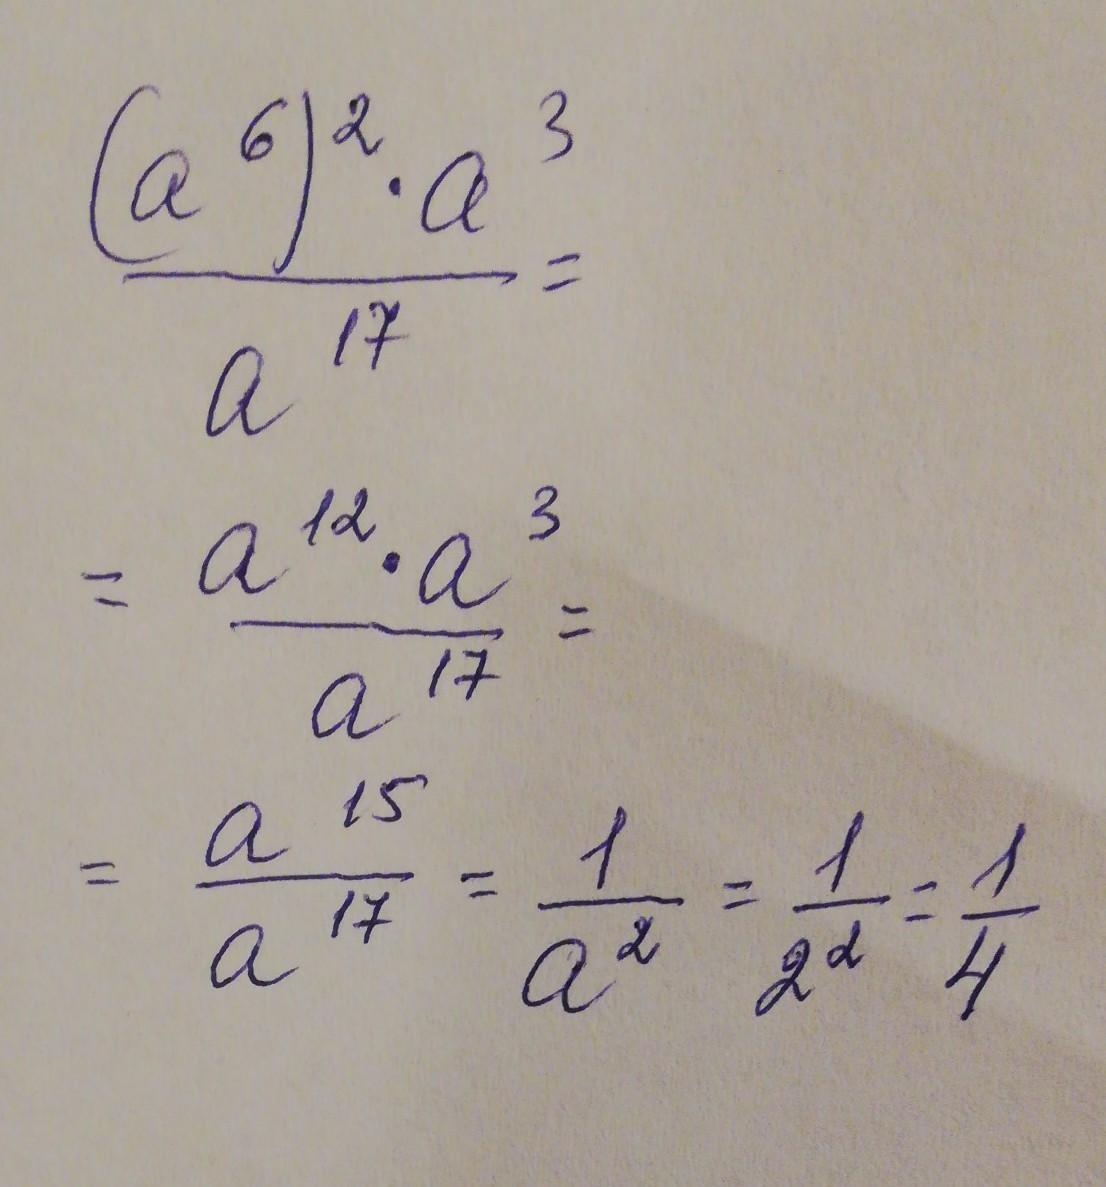 (a⁶)² · a³
/ a¹⁷ =
= a¹² · a³
/ a¹⁷ =
= a¹⁵ / a¹⁷ = 1 / a² = 1 / 2² = 1 / 4